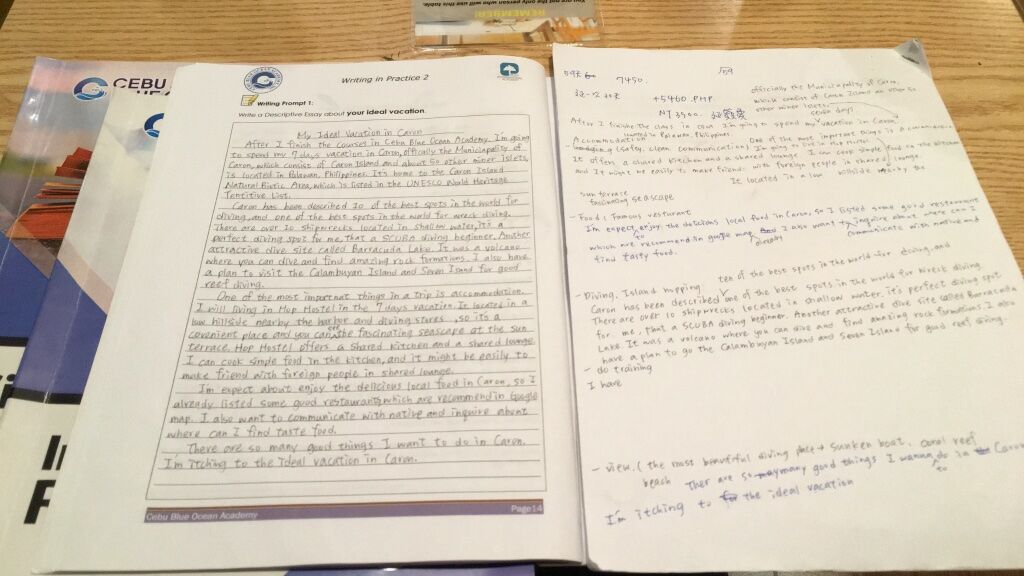 REMEMBER!
You are not the only person who will use this table.
CEBU
Writing in Practice 2
Writing Prompt 1:
Write a Descriptive Essay about your ideal vacation.
My Ideal Vacation in Caron
After I finish the courses in Cebu Blue Ocean Academy. I'm going
to spend my 7 days vacation in Caron, offically the Municipality of
Caron, which consist of Caron Island and about 50 other miner islets,
is located in Palawan, Philippines. It's home to the Caron Island
Natural Biotic Area, which is listed in the UNESCO World Heritage
Tentitive List.
Caron has been described 10 of the best spots in the world for
diving, and one of the best spots in the world for wreck diving.
There are over 10 shipwrecks located in shallow water, it's a
perfect diving spot for me, that a SCUBA diving beginner. Another
attractive dive site called Barracuda Lake. It was a volcano
where you can dive and find amazing rock formations. I also have
a plan to visit the Calambuyan Island and Seven Island for good
reef diving.
One of the most important things in a trip is accommodation.
I will living in Hop Hostel in the 7 days vacation. It located in a
low hillside nearby the harbor and diving stores, so it's a
convenient place and you can see the fascinating seascape at the sun
terrace. Hop Hostel offers a shared kitchen and a shared lounge.
I can cook simple food in the kitchen, and it might be easily to
make friend with foreign people in shared lounge.
I'm expect about enjoy the delicious local food in Caron, so I
already listed some good restaurants which are recommend in Google
map. I also want to communicate with native and inquire about
where can I find taste food.
There are so many good things I want to do in Caron.
I'm itching to the ideal vacation in Caron.
Cebu Blue Ocean Academy
Page14
7450.
+5460 PHP.
officially the Municipality of Caron,
which consist of Caron Island an other 50
other minor islets,
seven days
After I finish the class in CBOA I'm going to spend my vacation in Caron
located in Palawan, Philippines.
- Accommodation
One of the most important things is Accommodation.
(safty, clean, communication) I'm going to live in Hop Hostel
It often a shared kitchen and a shared lounge. I can cook simple food in the kitchen
and it might be easily to make friends with foreign people in shared lounge.
It located in a low hillside nearby the
sun terrace
fascinating seascape
- Food: Famous resturant
I'm expect enjoy the delicious local food in Caron, so I listed some good restaurant
which are recommend in google map. I also want to inquire about where can I
already
communicate with native and
find tasty food.
ten of the best spots in the world for diving, and
- Diving, Island hopping
Caron has been described one of the best spots in the world for wreck diving.
There are over 10 shipwrecks located in shallow water, it's perfect diving spot
for me, that a SCUBA diving beginner. Another attractive dive site called Barracuda
Lake. It was a volcano where you can dive and find amazing rock formations. I also
have a plan to go the Calambuyan Island and Seven Island for good reef diving.
- do training
I have
- view. (the most beautiful diving place → sunken boat, coral reef
beach
Ther are so many good things I wanna do in Caron
to
I'm itching to the ideal vacation